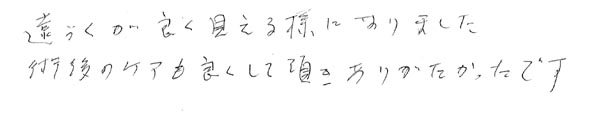 遠くが良く見える様になりました
術後のケアも良くして頂きありがたかったです